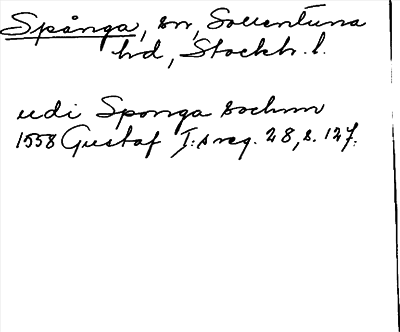 Spånga, sn, Sollentuna
hd, Stockh. l.
udi Sponga sochnn
1558 Gustaf I:s reg. 28, s. 127.